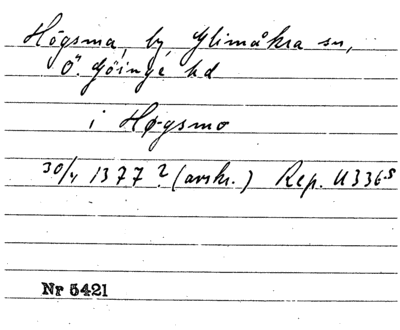 Högsma, by, Glimåkra sn,
Ö. Göinge hd
i Høgsmo
30/4 1377? (avskr.) Rep. 4336.5
Nr 5421